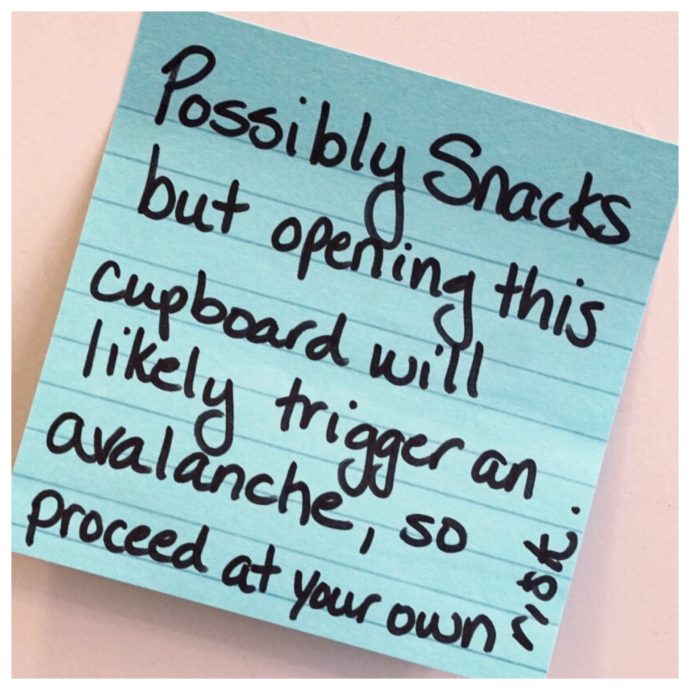 Possibly Snacks
but opening this
cupboard will
likely trigger an
avalanche, so
proceed at your own
risk.